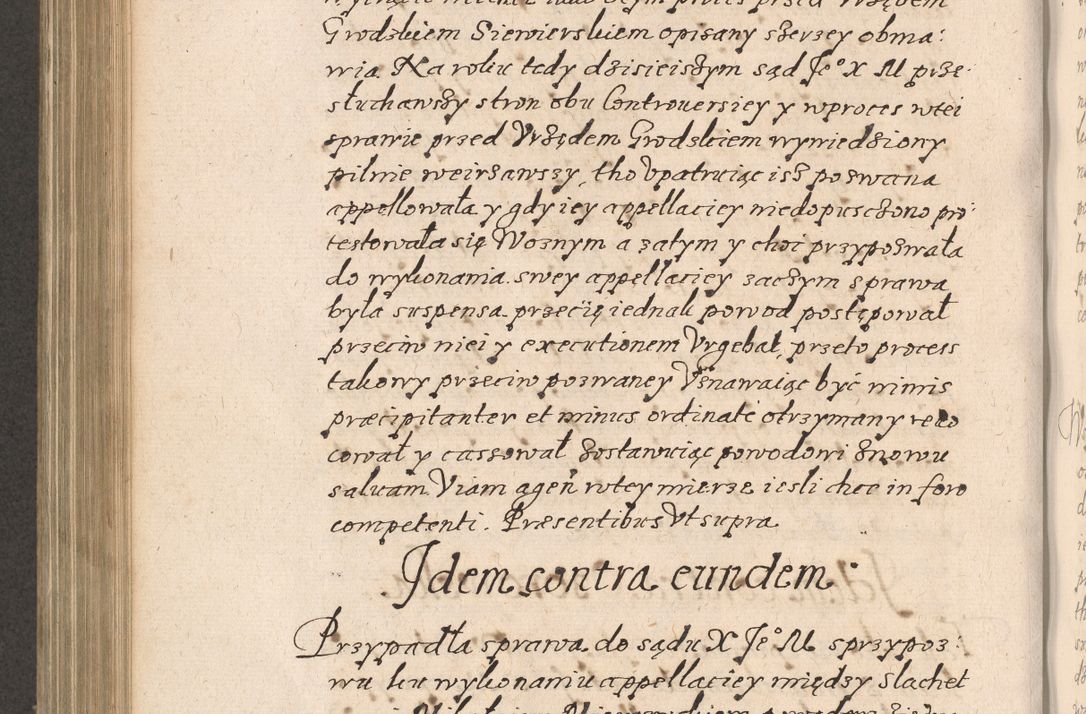 Grodzkiem Siewierskiem opisany szerzey obma:
wia. Na roku tedy dzisieiszym sąd Jeº X M prze:
słuchawszy stron obu Controuersiey y wproces wtei
sprawie przed Vrzędem Grodzkiem wywiedziony
pilnie weirzawszy, tho Vpatruiąc isz pozwana
appellowała y gdy iey appellaciey niedopusczono pro:
testowała się Woznym a zatym y choć przypozwała
do wykonania swey appellaciey zaczym sprawa
była suspensa przecię iednak powod postępował
przeciw niei y executionem Vrgebat, przeto process
takowy przeciw pozwaney Vznawaiąc być nimis
præcipitanter et minus ordinate otrzymany revo
cował y cassował zostawuiąc powodowi znowu
saluam Viam agen̄ wtey mierze iesli chce in foro
competenti. Præsentibus Vt supra
Jdem contra eundem.
Przypadła sprawa do sądu X Jeº M zprzypoz:
wu ku wykonaniu appellaciey między Slachet